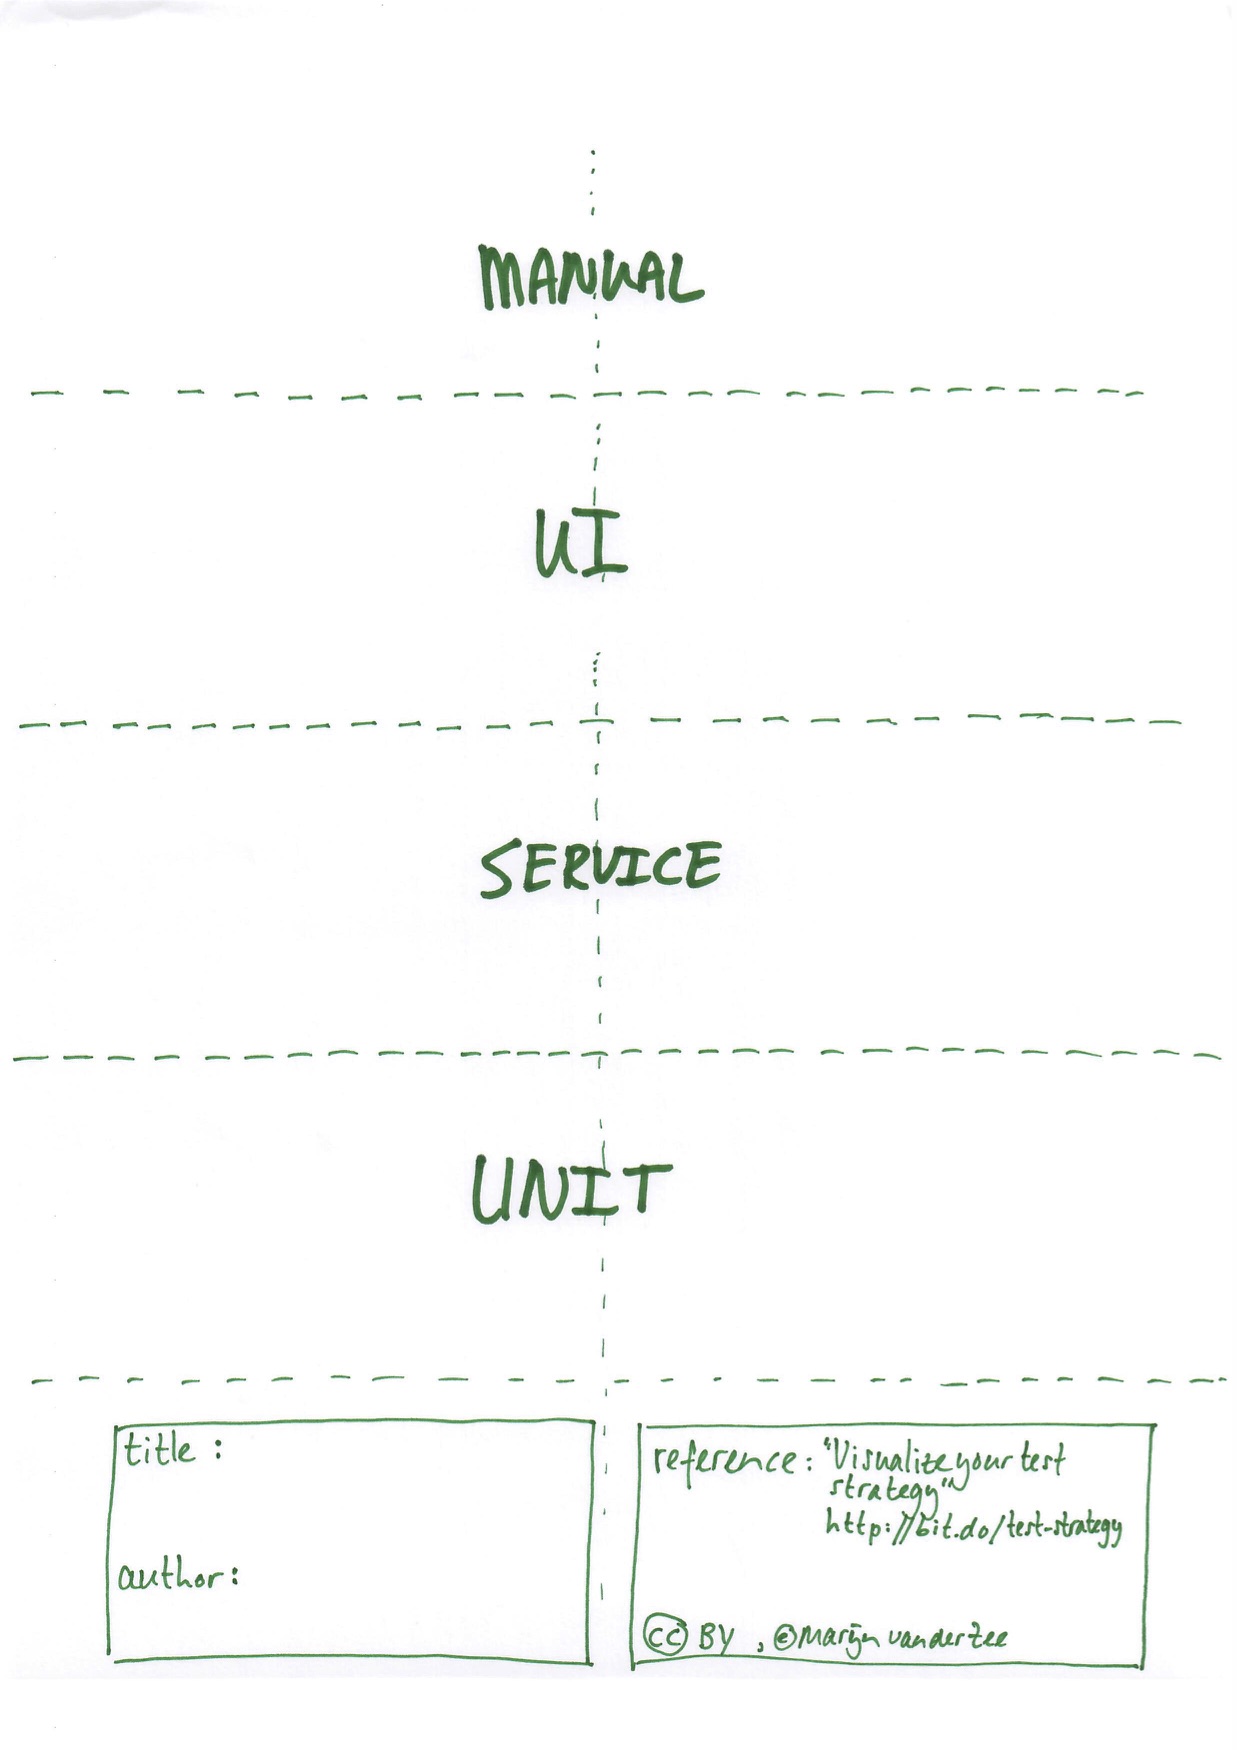 MANUAL
UI
SERVICE
UNIT
title :
author :
reference : "Visualize your test
strategy"
http://bit.do/test-strategy
cc BY , @Marijn vanderZee